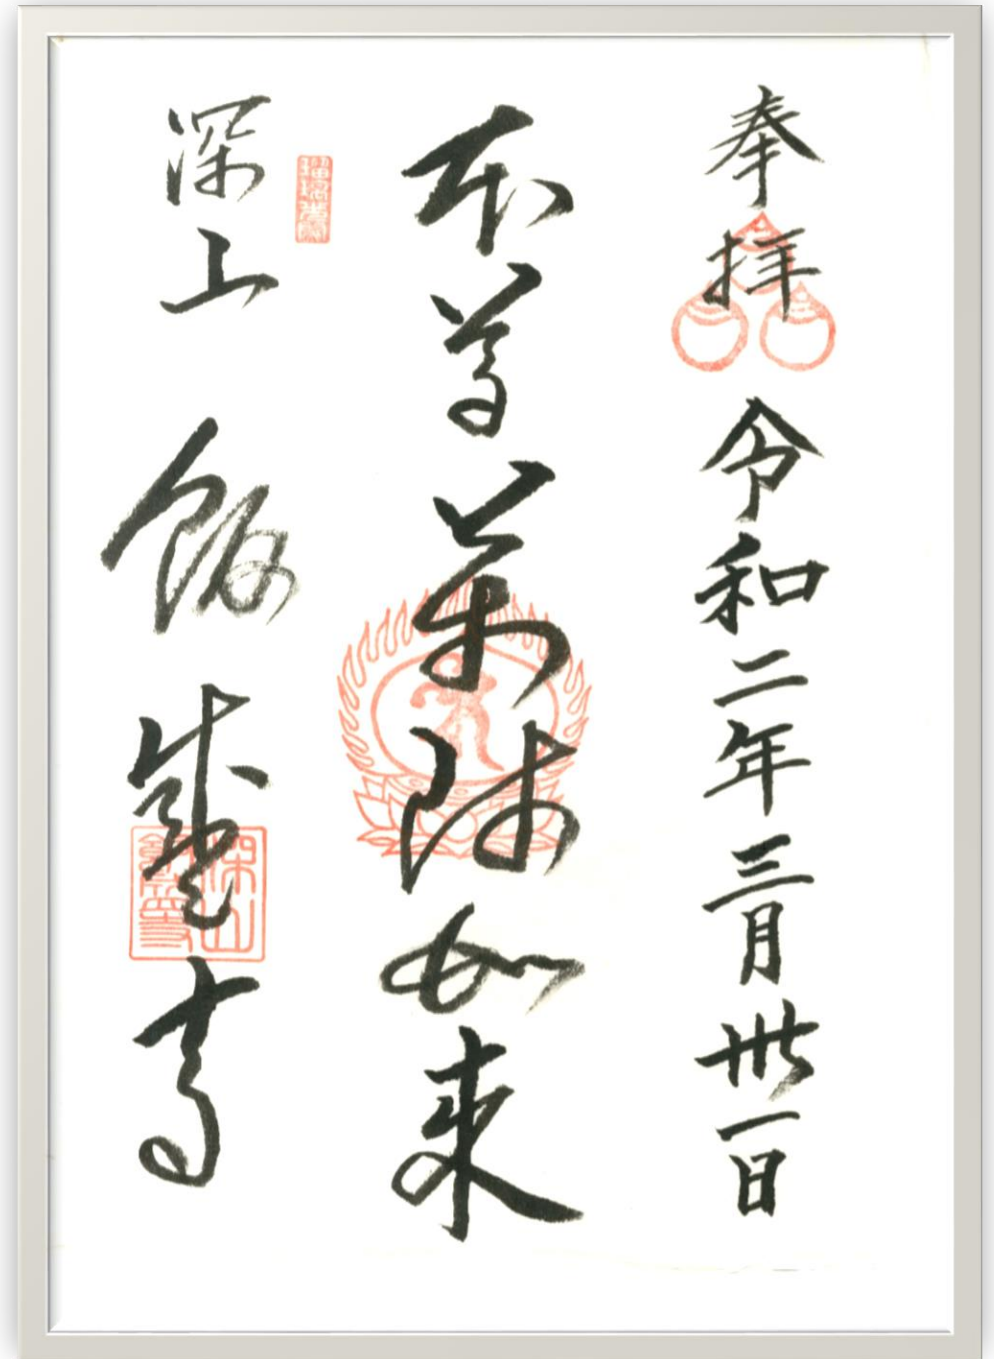 奉拝 令和二年三月卅一日
本尊薬師如来
深山 飯盛寺